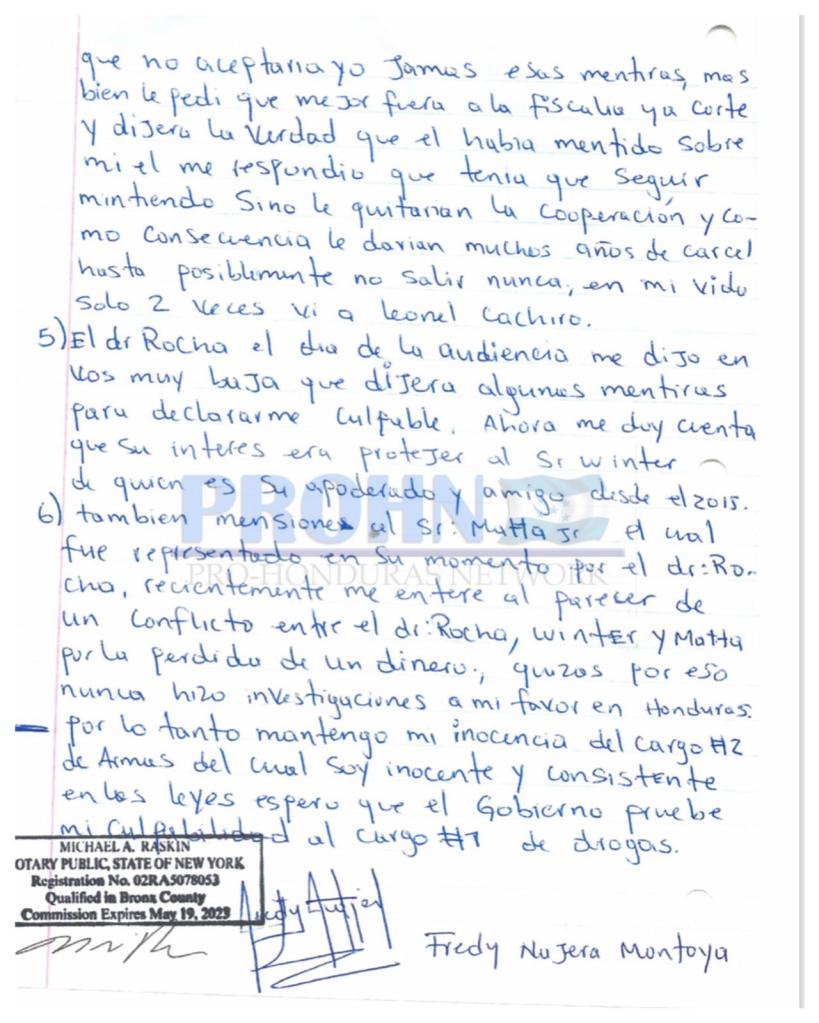 que no aceptaria yo Jamas esas mentiras, mas
bien le pedi que mejor fuera a la fiscalia ya corte
y dijera la verdad que el habia mentido sobre
mi el me respondio que tenia que seguir
mintiendo Sino le quitarian la cooperación y co-
mo consecuencia le darian muchos años de carcel
hasta posiblemente no salir nunca, en mi vida
solo 2 veces vi a leonel Cachiro.
5) El dr Rocha el dia de la audiencia me dijo en
vos muy baja que dijera algunas mentiras
para declararme culpable. Ahora me doy cuenta
que su interes era protejer al Sr winter
de quien es su apoderado y amigo desde el 2015.
PROHN
6) tambien mensione al Sr: Matta Jr el cual
fue representado en su momento por el dr: Ro-
PRO-HONDURAS NETWORK
cha, recientemente me entere al parecer de
un conflicto entre el dr: Rocha, winter y Matta
por la perdida de un dinero., quizas por eso
nunca hizo investigaciones a mi favor en Honduras.
por lo tanto mantengo mi inocencia del cargo #2
de Armas del cual soy inocente y consistente
en las leyes espero que el Gobierno pruebe
mi culpabilidad al cargo #1 de drogas.
MICHAEL A. RASKIN
OTARY PUBLIC, STATE OF NEW YORK
Registration No. 02RA5078053
Qualified in Bronx County
Commission Expires May 19, 2023
Fredy Najera Montoya